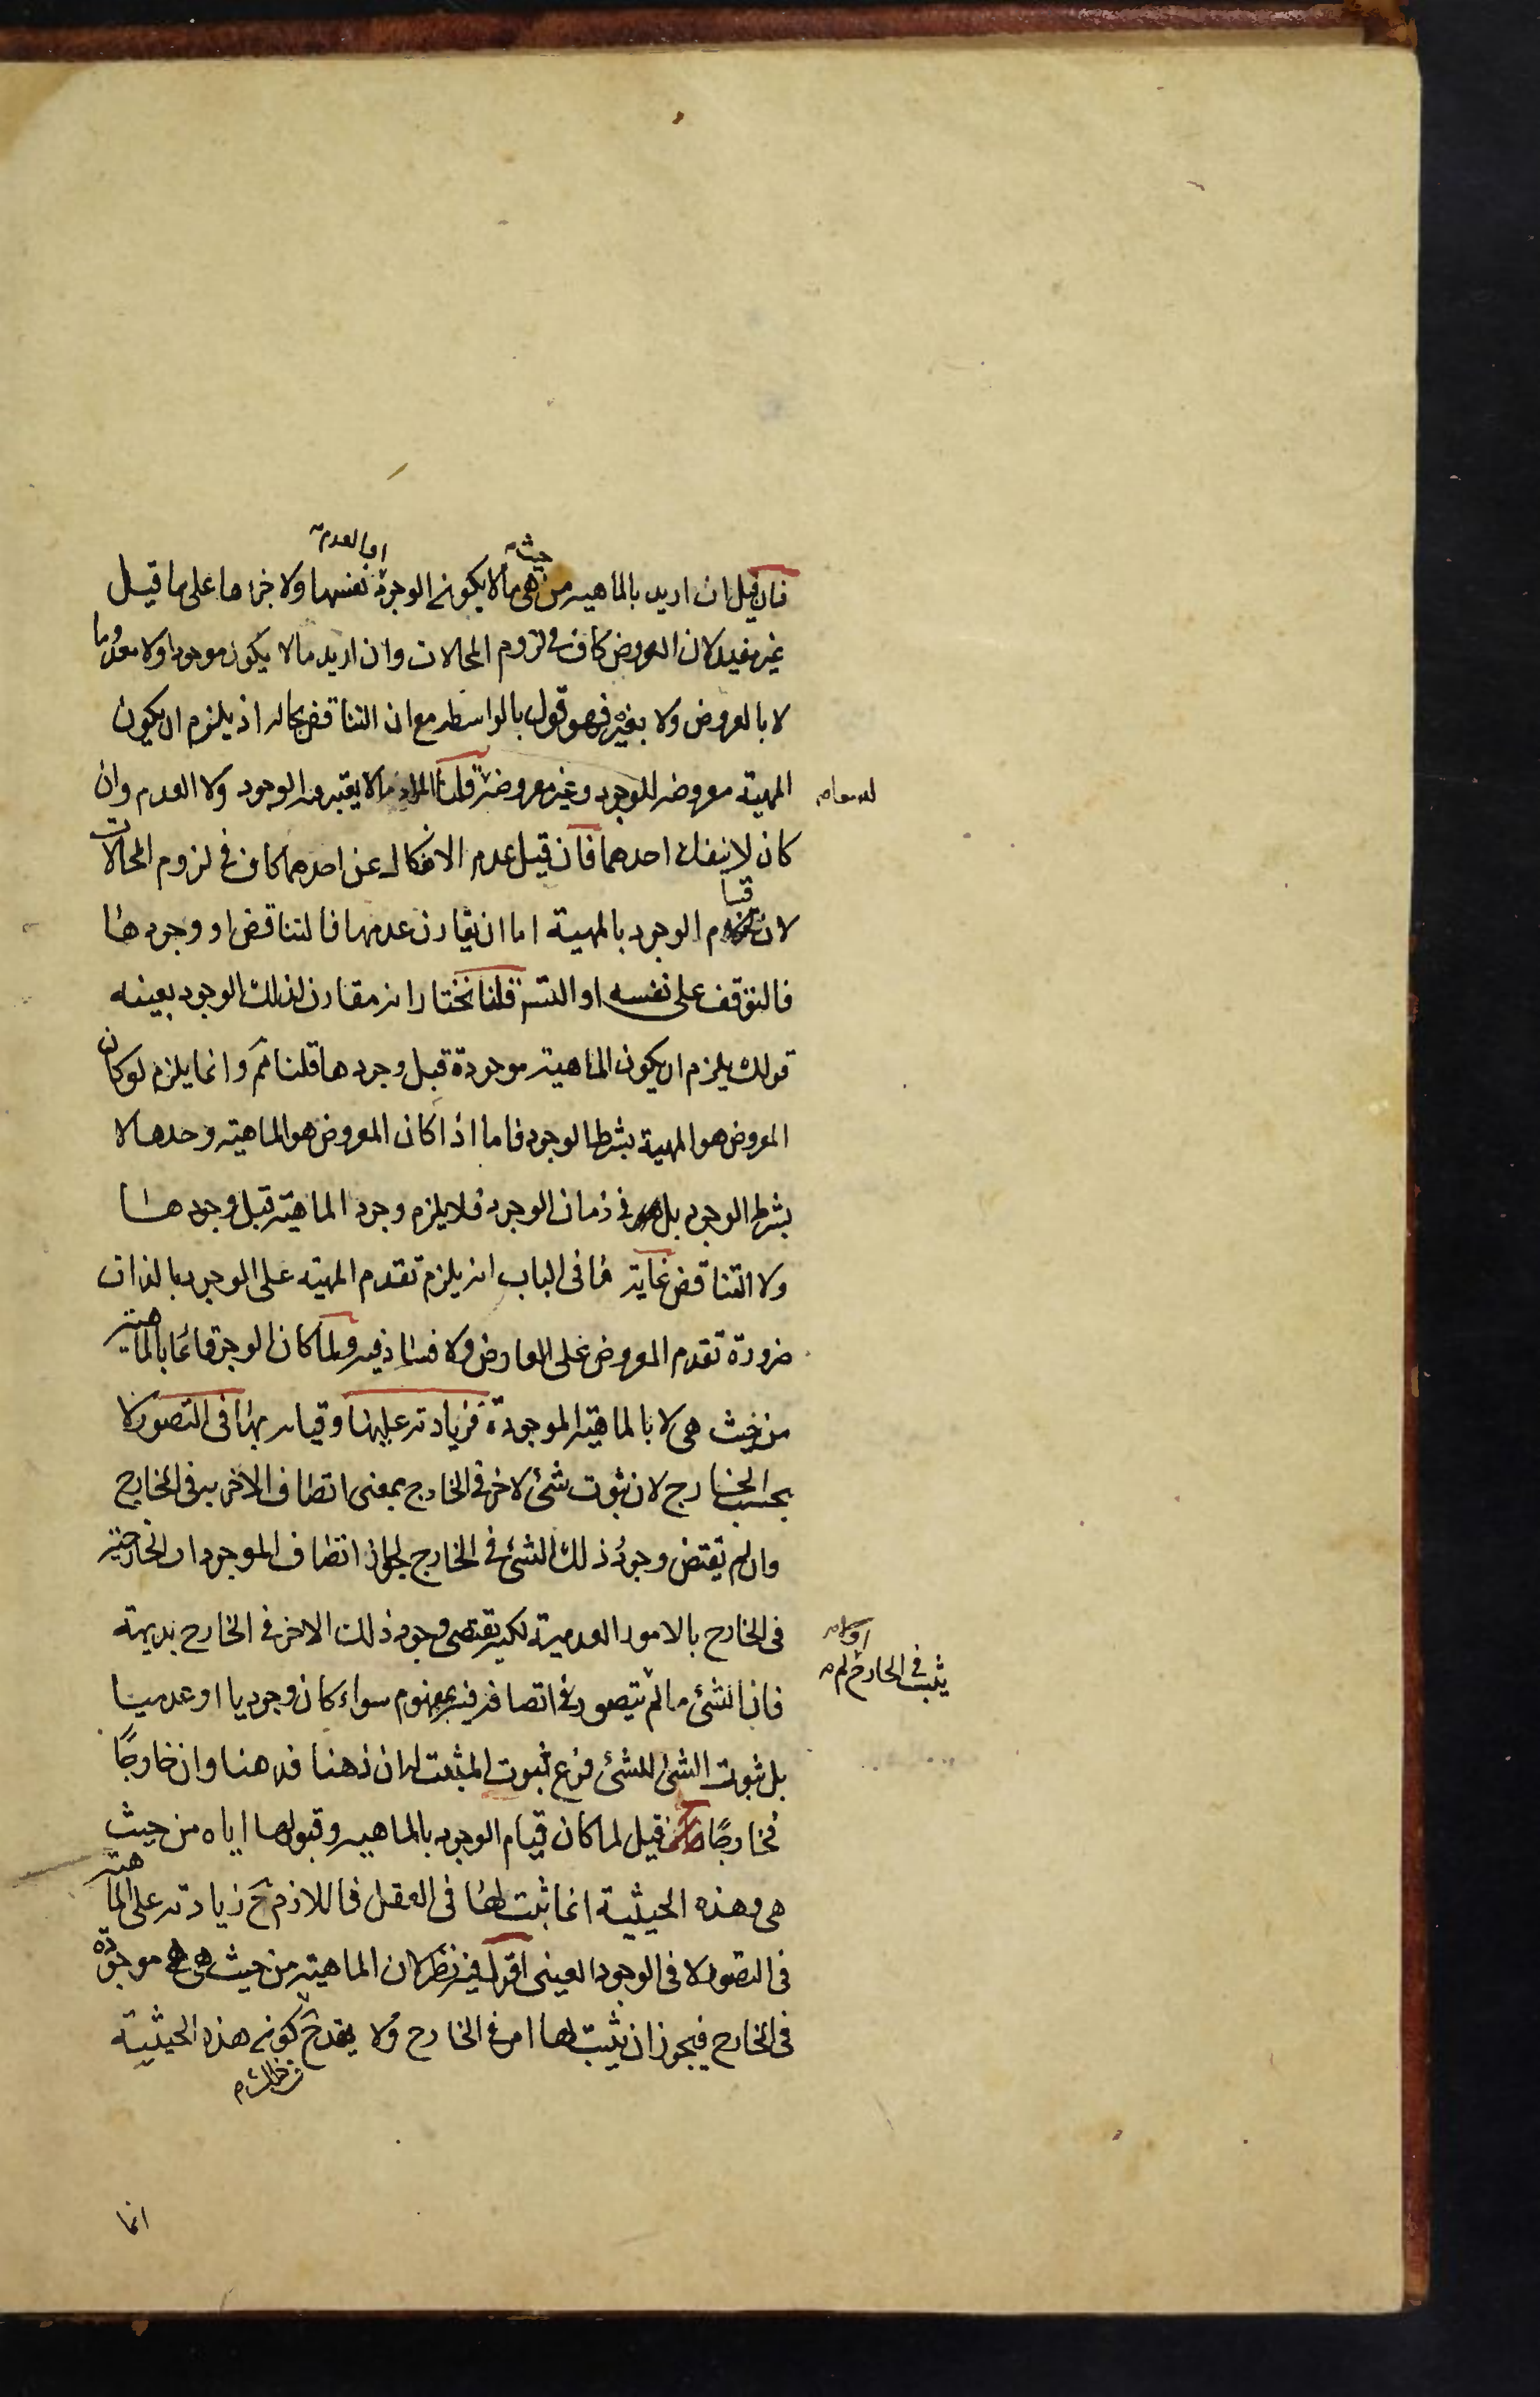 فان قيل ان اريد بالماهية من حيث هى ما لا يكون الوجود او العدم نفسها ولا جزءها على ما قيل
غير مفيد لان العروض كاف فى لزوم المحالات وان اريد ما لا يكون موجودا ولا معدوما
لا بالعروض ولا بغيره فهو قول بالواسطه مع ان التناقض بحاله اذ يلزم ان يكون
المهية معروضه للوجود وغير معروضة قلنا المراد ما لا يعتبر معه الوجود ولا العدم وان
كان لا ينفك احدهما فان قيل عدم الانفكاك عن احدهما كاف فى لزوم المحالات
لان قيام الوجود بالمهية اما ان يقارن عدمها فالتناقض او وجودها
فالتوقف على نفسه او التس قلنا نختار انه مقارن لذلك الوجود بعينه
قولك يلزم ان يكون الماهية موجودة قبل وجودها قلنا مم وانما يلزم لو كان
المعروض هو المهية بشرط الوجود فاما اذا كان المعروض هو الماهيه وحدها لا
بشرط الوجود بل فى زمان الوجود فلا يلزم وجود الماهية قبل وجودها
ولا التناقض غاية ما فى الباب انه يلزم تقدم المهية على الوجود بالذات
ضرورة تقدم المعروض على العارض ولا فساد فيه ولما كان الوجود قائما بالماهية
من حيث هى لا بالماهية الموجودة فزيادته عليها وقيامه بها فى التصور لا
بحسب الخارج لان ثبوت شئ لاخر فى الخارج بمعنى اتصاف الاخر به فى الخارج
وان لم يقتض وجود ذلك الشئ فى الخارج لجواز اتصاف الموجودات الخارجية
فى الخارج بالامور العدمية لكنه يقتضى وجود ذلك الاخر فى الخارج بديهة
فان الشئ ما لم يثبت فى الخارج لم يتصور اتصافه فيه بمفهوم سواء كان وجوديا او عدميا
بل ثبوت الشئ للشئ فرع ثبوت المثبت له ان ذهنا فذهنا وان خارجا
فخارجا قيل لما كان قيام الوجود بالماهية وقبولها اياه من حيث
هى وهذه الحيثية انما ثبت لها فى العقل فاللازم ح زيادته على الماهية
فى التصور لا فى الوجود العينى اقول فيه نظر لان الماهية من حيث هى هى موجودة
فى الخارج فيجوز ان يثبت لها امر فى الخارج ولا يقدح كون هذه الحيثية
انما